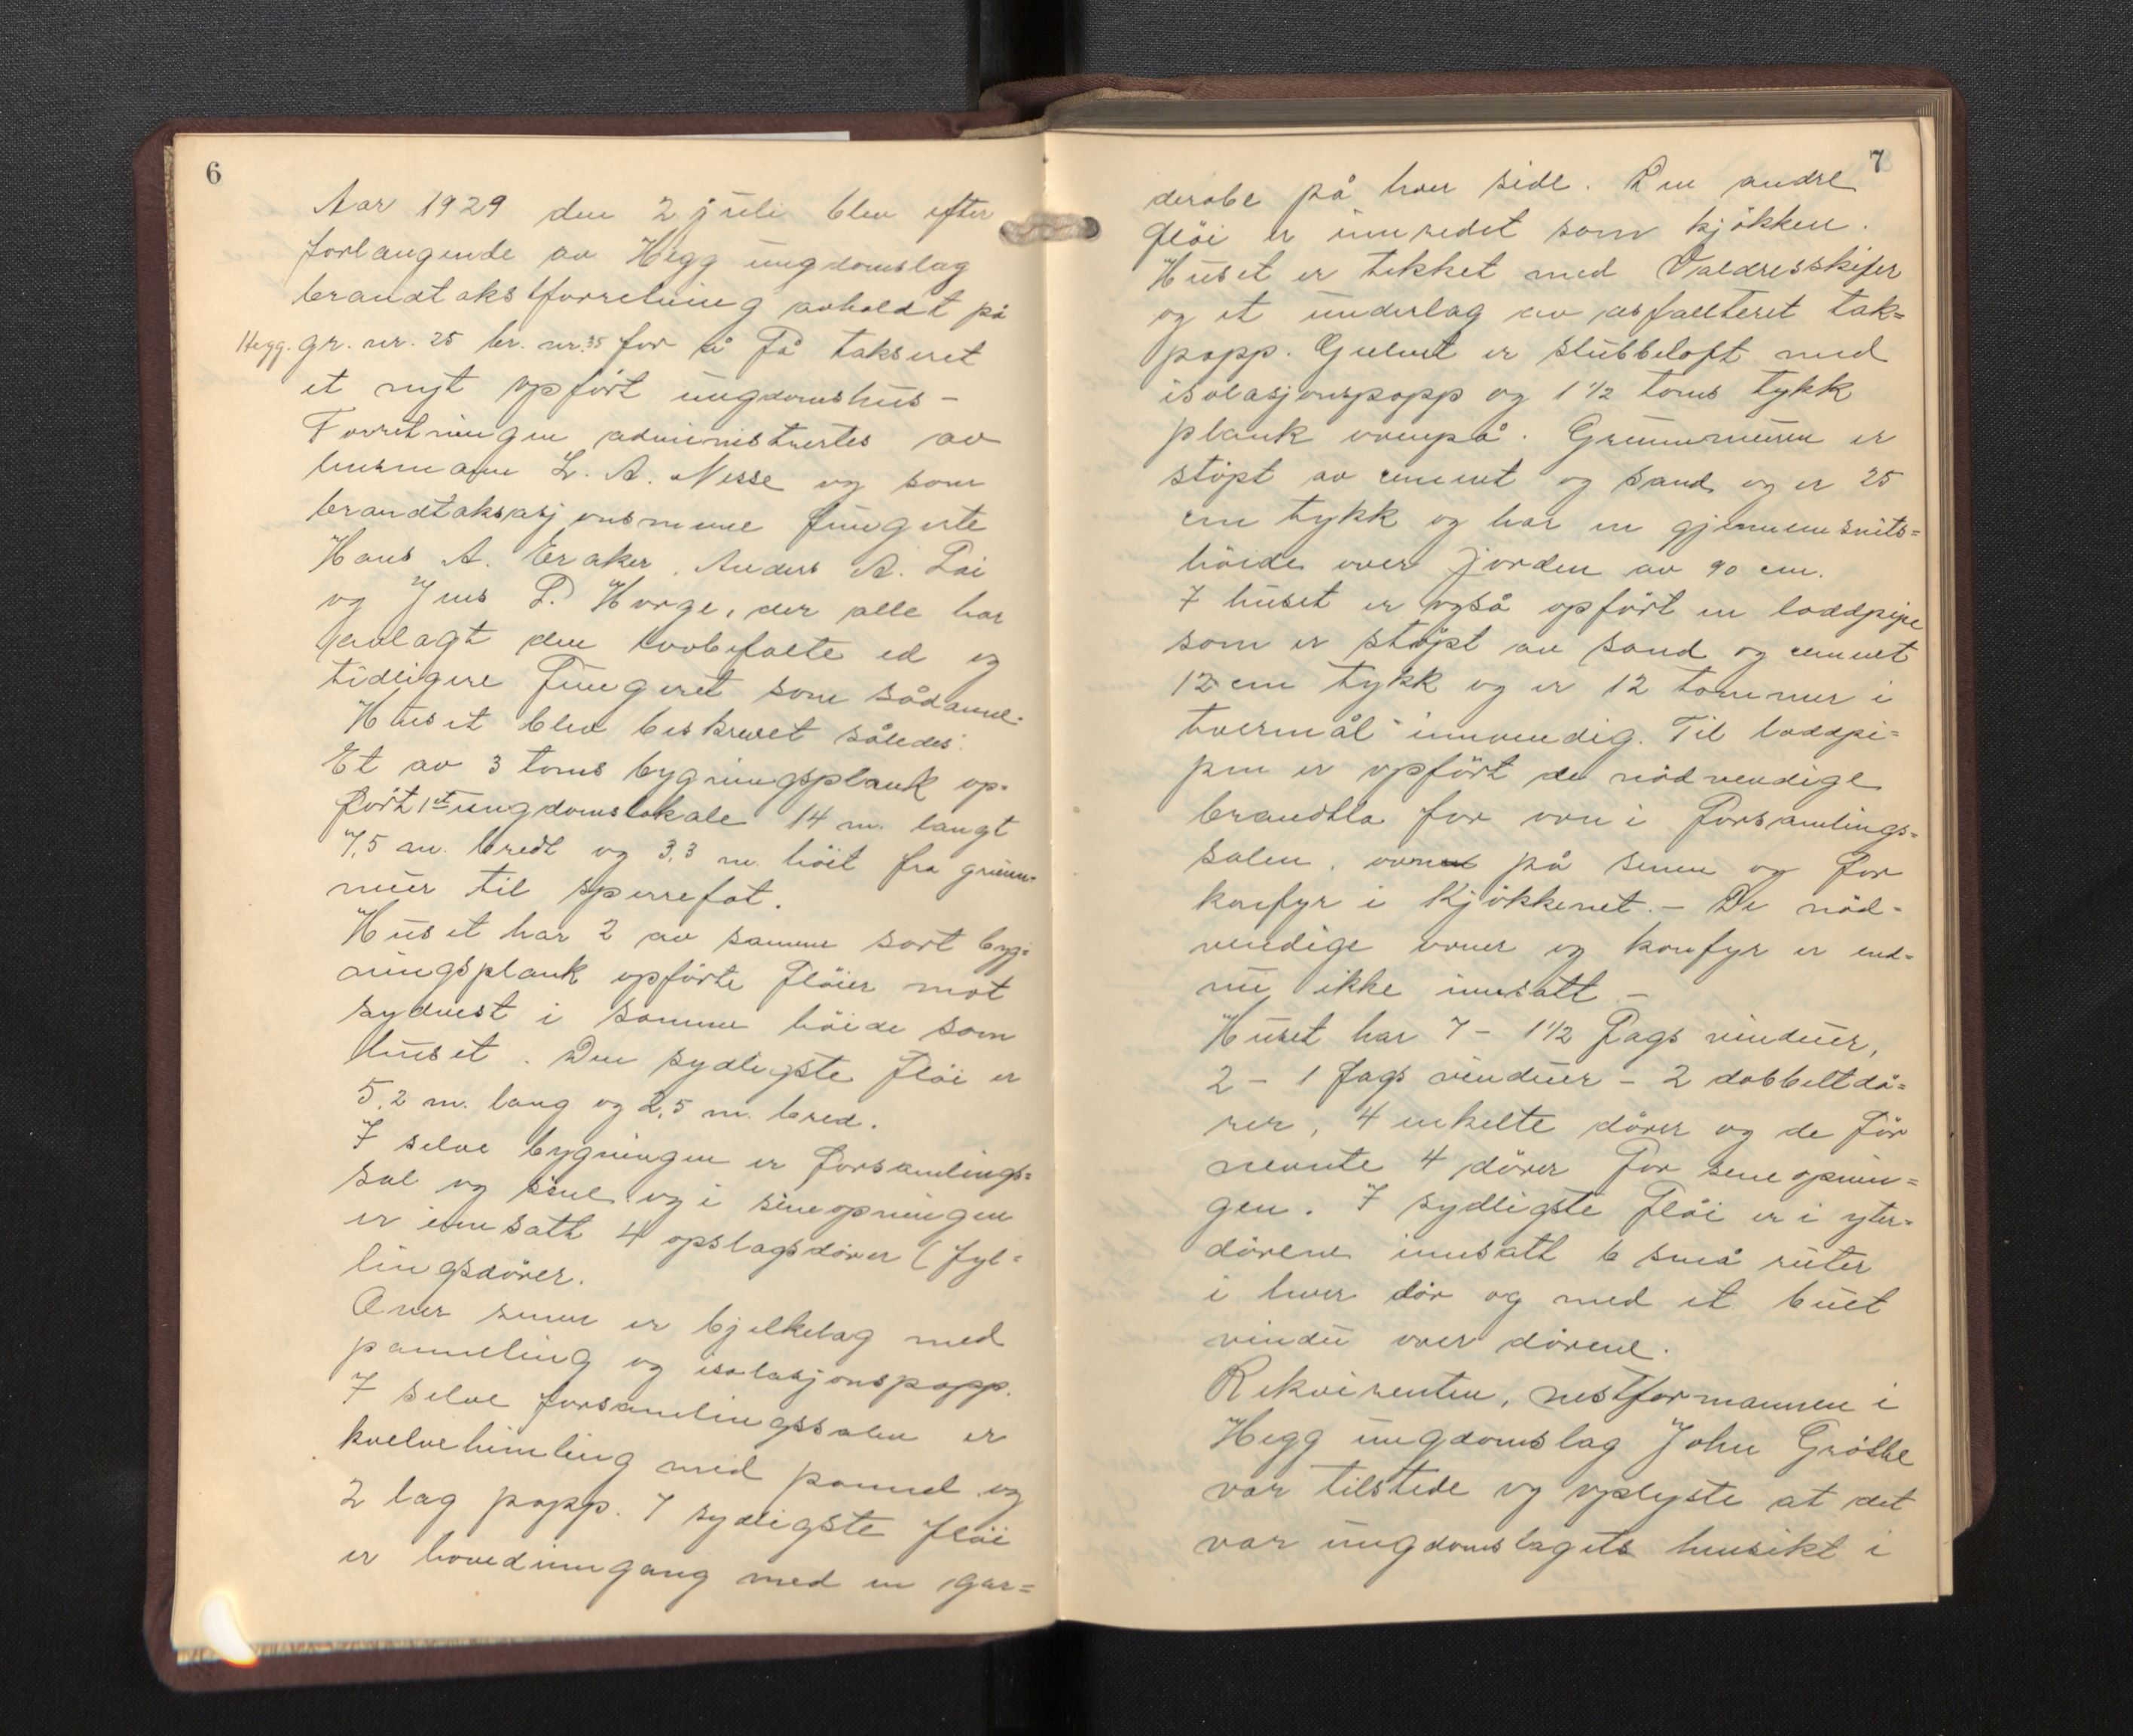 6
Aar 1929 den 2 juli blev efter
forlangende av Hegg ungdomslag
brandtakstforretning avholdt på
Hegg. gr. nr. 25 br. nr. 35 for å få taksert
et nyt opført ungdomshus -
Forretningen administrertes av
lensmann L. A. Nesse og som
brandtaksasjonsmenn fungerte
Hans A. Eraker, Anders A. Løi
og Jens P. Horge, der alle har
avlagt den lovbefalte ed og
tidligere fungeret som sådanne.
Huset blev beskrevet således:
Et av 3 toms bygningsplank op-
ført 1 et ungdomslokale 14 m. langt
7,5 m. bredt og 3,3 m. høit fra grunn-
mur til sperrefot.
Huset har 2 av samme sort byg-
ningsplank opførte fløier mot
sydvest i samme høide som
huset. Den sydligste fløi er
5,2 m. lang og 2,5 m. bred.
I selve bygningen er forsamlings-
sal og sene og i sineopningen
er innsatt 4 opslagsdører (fyl-
lingsdører.
Over senen er bjelkelag med
panneling og isolasjonspapp.
I selve forsamlingssalen er
kvelvehimling med pannel og
2 lag papp. I sydligste fløi
er hovedinngang med en gar-
7
derobe på hver side. Den andre
fløi er innredet som kjøkken.
Huset er tekket med Valdresskifer
og et underlag av asfalteret tak-
papp. Gulvet er stubbeloft med
isolasjonspapp og 1 1/2 toms tykk
plank ovenpå. Grunnmuren er
støpt av cement og sand og er 25
cm tykk og har en gjennemsnits-
høide over jorden av 90 cm.
I huset er også opført en loddpipe
som er støpt av sand og cement
12 cm tykk og er 12 tommer i
tvermål innvendig. Til loddpi-
pen er opført de nødvendige
brandbla for ovn i forsamlings-
salen, ovn på senen og for
komfyr i kjøkkenet. - De nød-
vendige ovner og komfyr er end-
nu ikke innsatt -
Huset har 7 - 1 1/2 fags vinduer,
2 - 1 fags vinduer - 2 dobbeltdø-
rer, 4 enkelte dører og de før
nevnte 4 dører for seneopnin-
gen. I sydligste fløi er i yter-
dørene innsatt 6 små ruter
i hver dør og med et buet
vindu over dørene.
Rekvirenten, nestformannen i
Hegg ungdomslag John Grøthe
var tilstede og oplyste at det
var ungdomslagets hensikt i